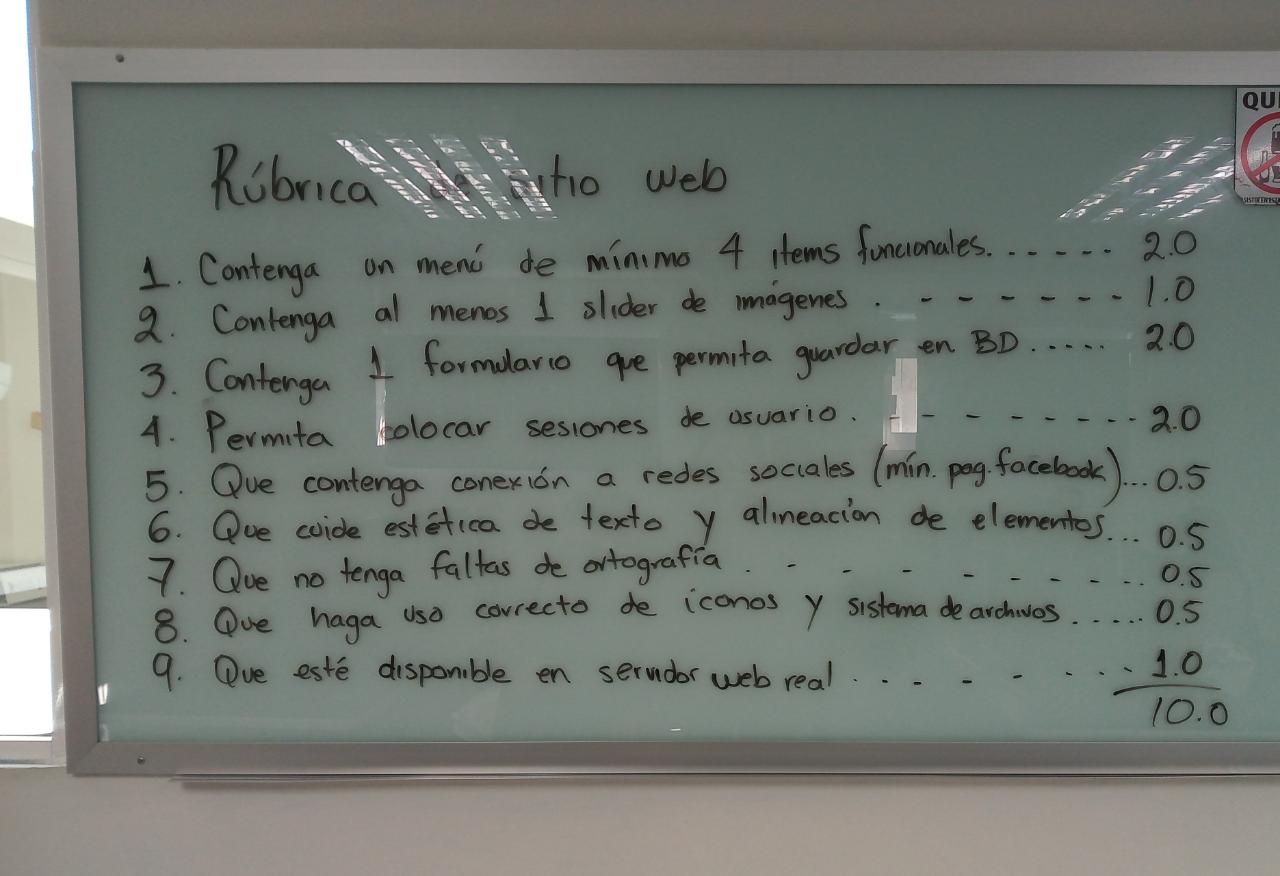 Rúbrica de sitio web
1. Contenga un menú de mínimo 4 items funcionales. . . . . . 2.0
2. Contenga al menos 1 slider de imágenes . - - - - - - - 1.0
3. Contenga 1 formulario que permita guardar en BD . . . . . 2.0
4. Permita colocar sesiones de usuario . - - - - - - - - 2.0
5. Que contenga conexión a redes sociales (mín. pag. facebook)... 0.5
6. Que cuide estética de texto y alineación de elementos... 0.5
7. Que no tenga faltas de ortografía . - - - - - - - - .. 0.5
8. Que haga uso correcto de iconos y sistema de archivos . . . . . 0.5
9. Que esté disponible en servidor web real . . . - - - . . . 1.0
10.0
QUE